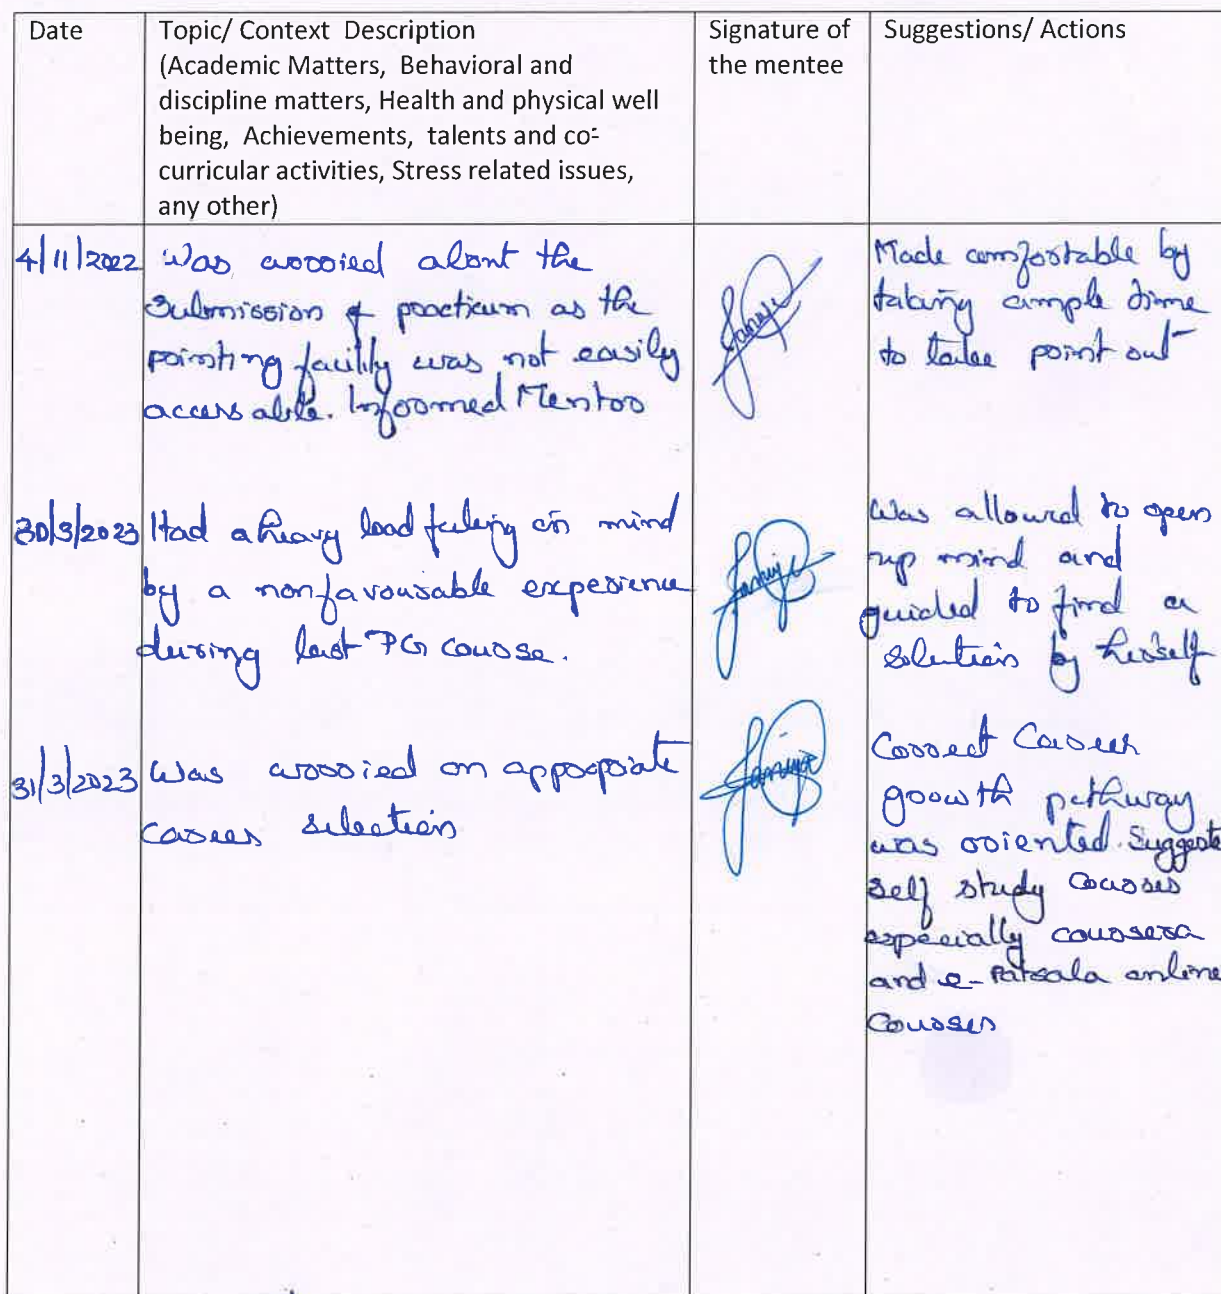 Date
Topic/ Context Description
(Academic Matters, Behavioral and
discipline matters, Health and physical well
being, Achievements, talents and co-
curricular activities, Stress related issues,
any other)
Signature of
the mentee
Suggestions/ Actions
4/11/2022
Was worried about the
Submission of practicum as the
printing facility was not easily
accessable. Informed Mentor
Made comfortable by
taking ample time
to take print out
30/3/2023
Had a heavy load feeling in mind
by a nonfavourable experience
during last PG course.
Was allowed to open
up mind and
guided to find a
solution by
31/3/2023
Was worried on appropriate
career selection
Correct Career
growth pathway
was oriented. Suggeste
self study courses
especially coursera
and e-Patsala online
Courses